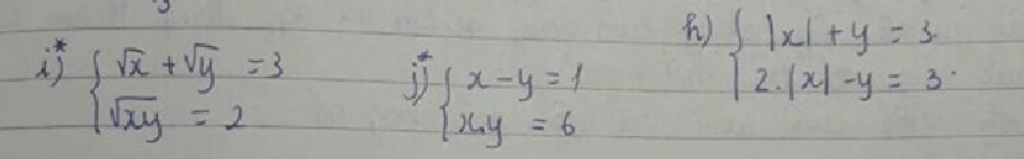 h) { |x| + y = 3
2.|x| - y = 3.
i)* { √x + √y = 3
√xy = 2
j)* { x - y = 1
x.y = 6